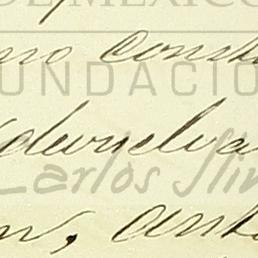 DE MÉXICO
no const
FUNDACIÓ
devuelva
Carlos Slim
n, ant